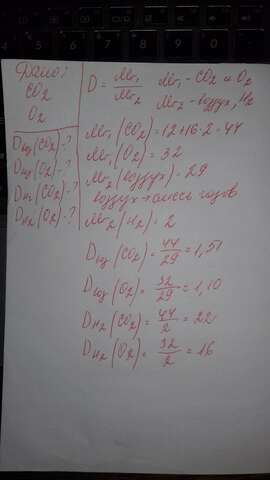 Дано:
CO2
O2
Dвоз(CO2)-?
Dвоз(O2)-?
DH2(CO2)-?
DH2(O2)-?
D = Mr1/Mr2 Mr1 - CO2 и O2
Mr2 - воздух, H2
Mr1(CO2) = 12+16·2=44
Mr1(O2) = 32
Mr2(воздух) = 29
воздух → смесь газов
Mr2(H2) = 2
Dвоз(CO2) = 44/29 = 1,51
Dвоз(O2) = 32/29 = 1,10
DH2(CO2) = 44/2 = 22
DH2(O2) = 32/2 = 16